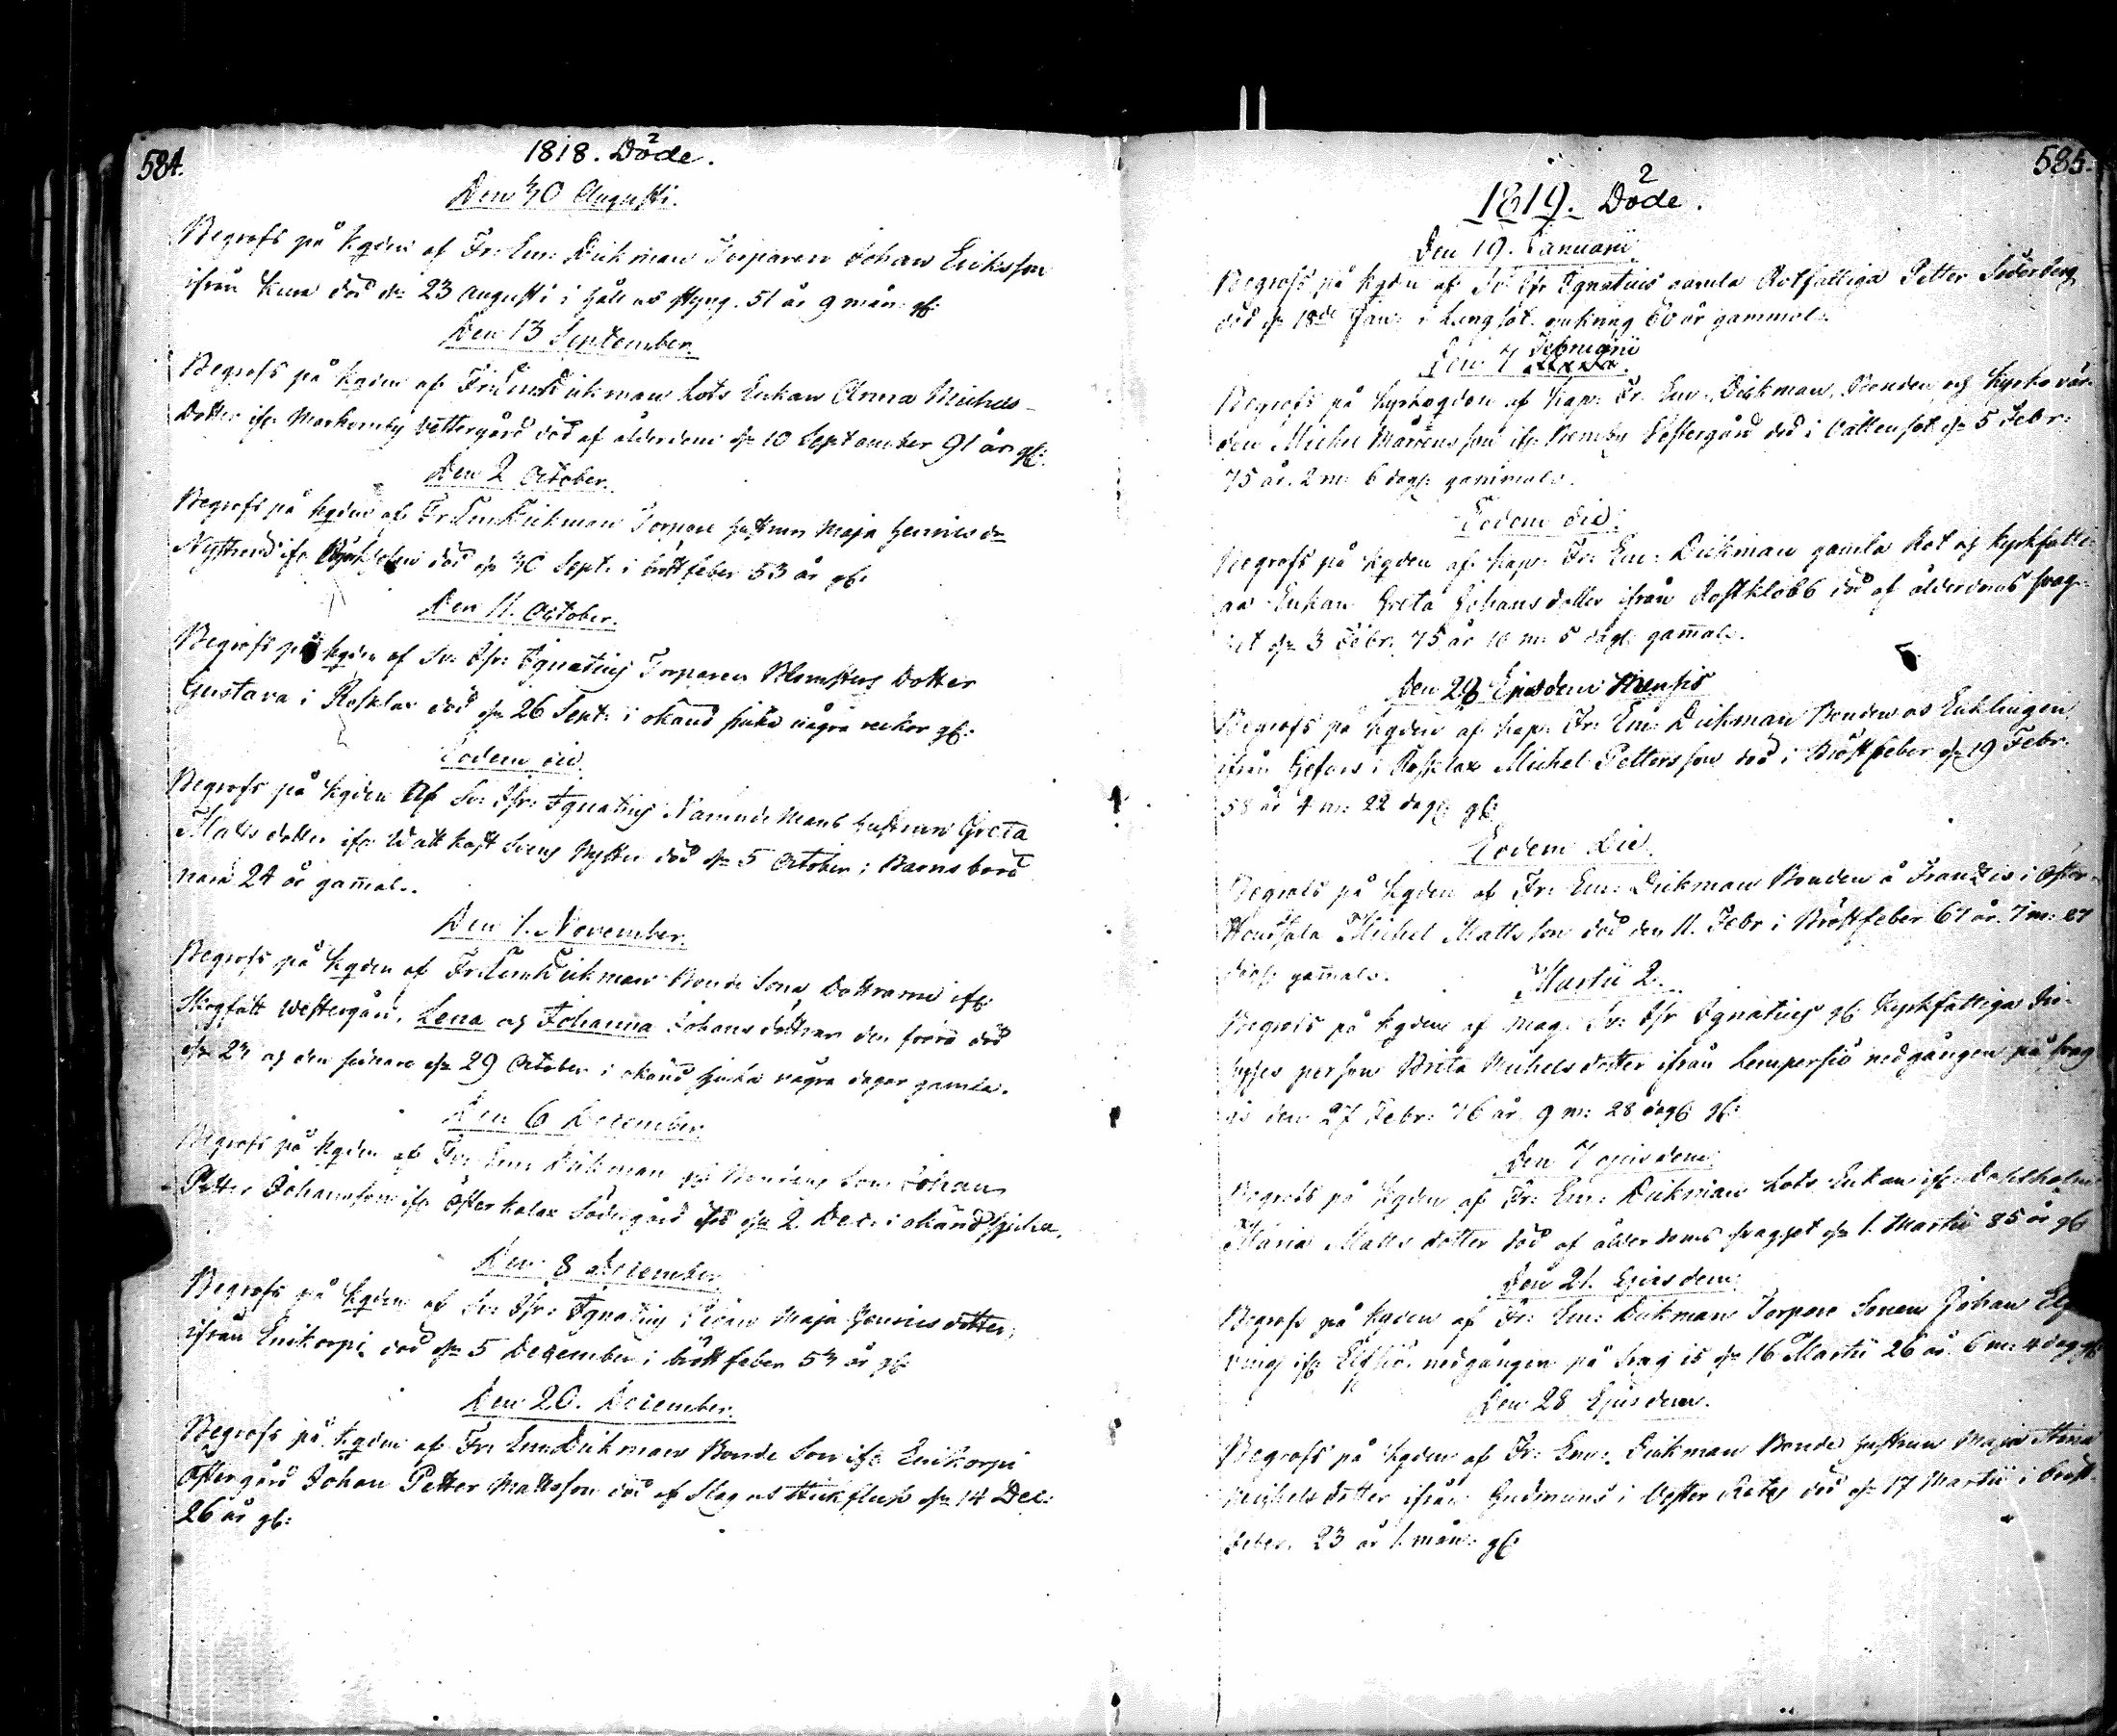 584.
1818. Döde.
Den 30 Augusti.
Begrofs på kgden af Fr: Em: Dickman Torparen Johan Eriksson
ifrån Kura död d: 23 Augusti i håll och styng. 51 år 9 mån: gl:
Den 13 September.
Begrofs på kgden af Fr: Em: Dickman Lots Enkan Anna Michels-
dotter ifr: Markomby Vettergård död af ålderdom d: 10 September 91 år gl:
Den 2 October.
Begrofs på kgden af Fr: Em: Dickman Torpare hustrun Maja Henricsd:
Nystrand ifr: död d: 30 Sept: i bröstfeber 53 år gl:
Den 11. October.
Begrofs på kgden af Sv: Isr: Ignatius Torparen Blomsters Dotter
Gustava i Rosklax död d: 26 Sept: i okänd sjuka några veckor gl:
Eodem die.
Begrofs på kgden Af Sv: Isr: Ignatius Nämnde Mans hustrun Greta
Matts dotter ifr: Wattkast död d: 5 October i Barnsbörd
24 år gammal.
Den 1. November.
Begrofs på kgden af Fr: Em: Dickman Bonde Sons Döttrarne ifr:
Skogfält Westergård, Lena och Johanna Johans döttrar den förra död
d: 23 och den sednare d: 29 October i okänd sjuka några dagar gamla.
Den 6 December.
Begrofs på kgden af Fr: Em: Dickman Bondens Son Johan
Petter Johansson ifr: Österkalax Södergård död d: 2. Dec: i okänd sjuka.
Den 8 December.
Begrofs på kgden af Sv: Isr: Ignatius Maja Henrics dotter
ifrån Enikorpi död d: 5 December i bröstfeber 53 år gl:
Den 20. December.
Begrofs på kgden af Fr: Em: Dickman Bonde Son ifr: Enikorpi
Östergård Johan Petter Mattsson död af Slag och d: 14 Dec:
26 år gl:
585.
1819. Döde.
Den 19. Januarii.
Begrofs på kgden af Sv: Isr: Ignatius gamla Rotfattiga Petter Söderberg
död d: 18de Jan: i Lungsot. 60 år gammal.
Den 7 Februarii
Begrofs på kyrkogden af Kap: Fr: Em: Dickman, Bonden och Kyrkovär-
den Michel Mårtensson ifr: Östergård död i Vattensot d: 5 Febr:
75 år. 2 m: 6 dag: gammal.
Eodem die.
Begrofs på kgden af Kap: Fr: Em: Dickman gamla Rot och kyrkfatti-
ga Enkan Greta Johans dotter ifrån Rostklobb död af ålderdoms svag-
het d: 3 Febr: 75 år 10 m: 5 dag: gammal.
Den 28 Ejusdem Mensis
Begrofs på kgden af Kap: Fr: Em: Dickman Bonden och Enklingen
ifrån Gefars i Rosklax Michel Pettersson död i Bröstfeber d: 19 Febr:
58 år 4 m: 22 dag: gl:
Eodem die.
Begrofs på kgden af Fr: Em: Dickman Bonden å Frantsis i Öster-
Houtsala Michel Mattsson död den 11. Febr: i Bröstfeber 67 år 7 m: 27
dag: gammal. Martii 2.
Begrofs på kgden af Mag: Sv: Isr: Ignatius gl: Kyrkfattiga In-
hyses person Brita Michels dotter ifrån Lempersjö nedgången på svag
is den 27 Febr: 76 år 9 m: 28 dag: gl:
Den 7 ejusdem.
Begrofs på kgden af Fr: Em: Dickman Lots Enkan ifr: Dahlholm
Maria Matts dotter död af ålderdoms svaghet d: 1. Martii 85 år gl:
Den 21. Ejusdem.
Begrofs på kgden af Fr: Em: Dickman Torpare Sonen Johan
ifr: Elfsjö nedgången på svag is d: 16 Martii 26 år 6 m: 4 dag gl:
Den 28 Ejusdem.
Begrofs på kgden af Fr: Em: Dickman Bonde hustrun Maja Stina
Michels dotter ifrån Gudmuns i Vester Retais död d: 17 Martii i bröst-
feber. 23 år 1. mån: gl: